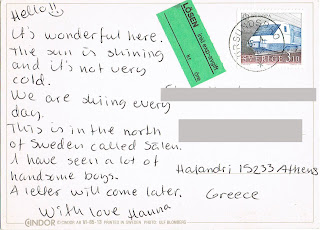 Hello!!
It's wonderful here.
The sun is shining
and it's not very
cold.
We are skiing every
day.
This is in the north
of Sweden called Sälen.
I have seen a lot of
handsome boys.
A letter will come later.
With love Hanna
LÖSEN
SVERIGE
Halandri 15233 Athens
Greece
CINDOR
PRINTED IN SWEDEN